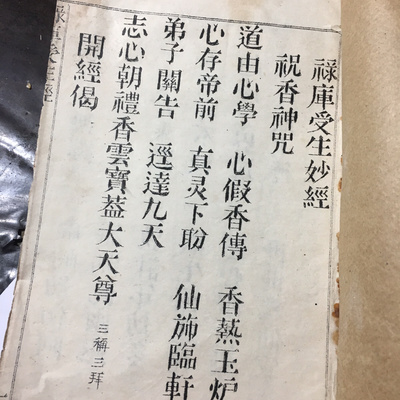 祿庫受生妙經
祝香神咒
道由心學 心假香傳 香熱玉炉
心存帝前 真灵下盼 仙斾臨軒
弟子關告 逕達九天
志心朝禮香雲寶蓋大天尊 三稱三拜
開經偈